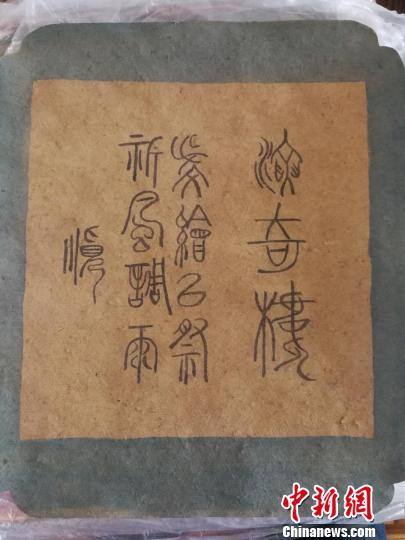 奇樓
繪㠯祭
祈風調雨
順
中新网
Chinanews.com